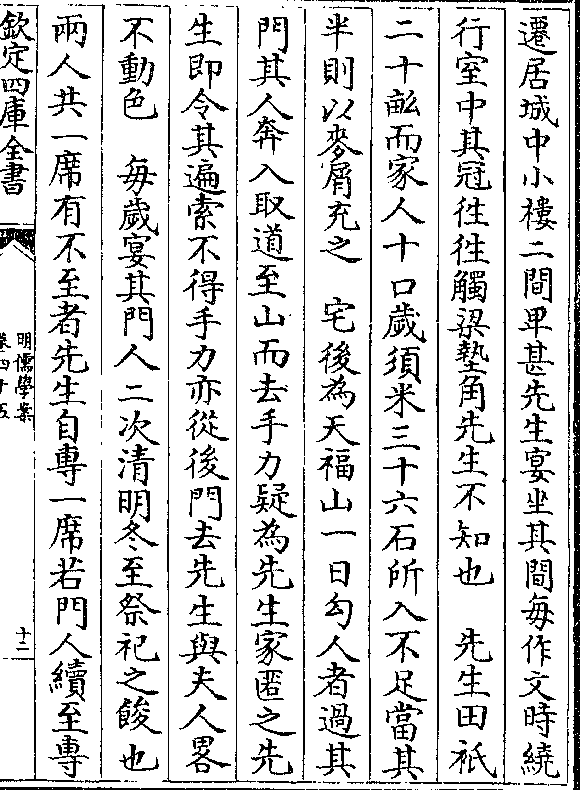 遷居城中小樓二間卑甚先生宴坐其間每作文時繞
行室中其冠徃徃觸梁墊角先生不知也　先生田祇
二十畝而家人十口歲須米三十六石所入不足當其
半則以麥屑充之　宅後為天福山一日勾人者過其
門其人奔入取道至山而去手力疑為先生家匿之先
生即令其遍索不得手力亦從後門去先生與夫人畧
不動色　每歲宴其門人二次清明冬至祭祀之餕也
兩人共一席有不至者先生自專一席若門人續至專
欽定四庫全書
明儒學案
卷四十五
十二